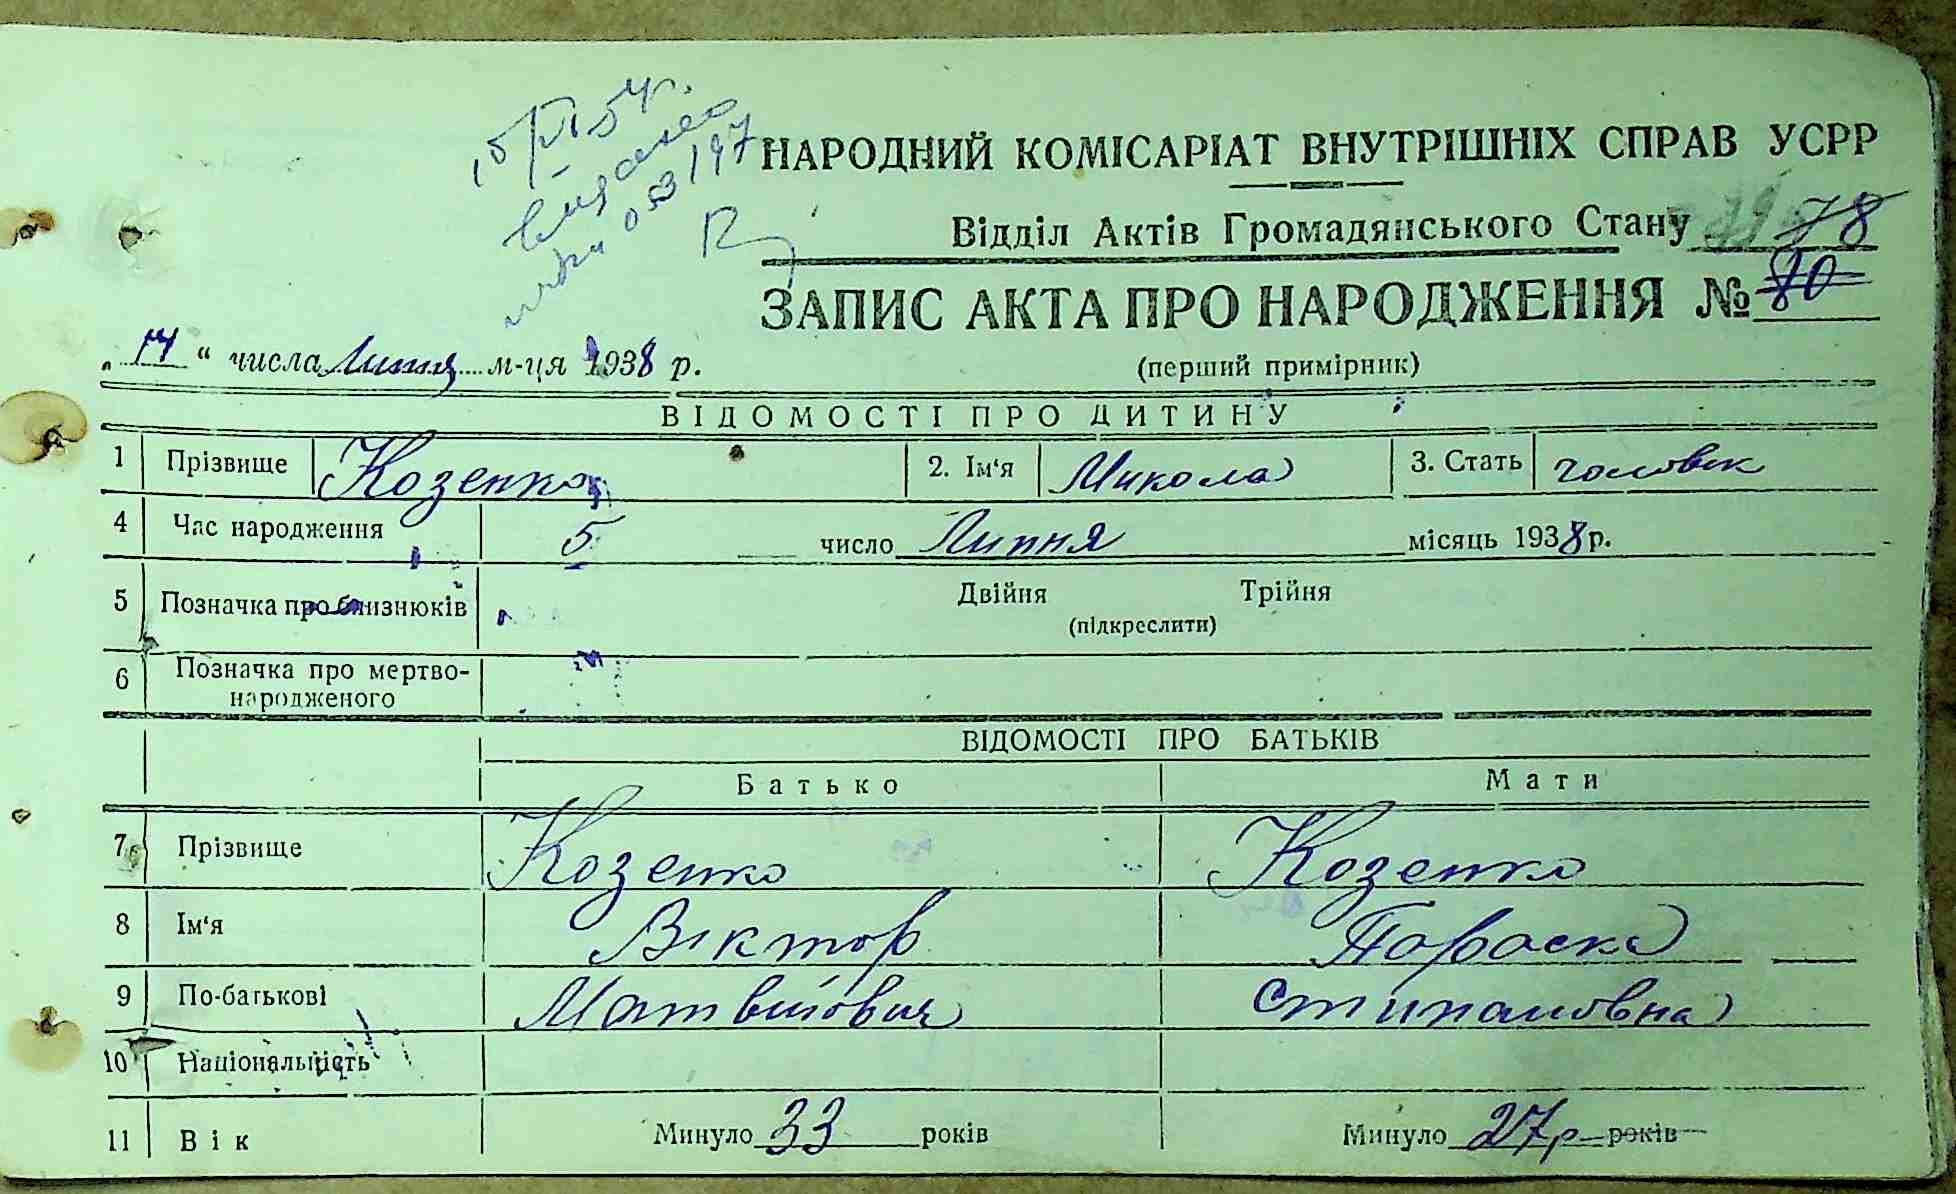 НАРОДНИЙ КОМІСАРІАТ ВНУТРІШНІХ СПРАВ УСРР
Відділ Актів Громадянського Стану 78
ЗАПИС АКТА ПРО НАРОДЖЕННЯ № 80
„14“ числа Липня м-ця 1938 р.
(перший примірник)
ВІДОМОСТІ ПРО ДИТИНУ
1 Прізвище Козенко 2. Ім‘я Микола 3. Стать чоловік
4 Час народження 5 число Липня місяць 1938 р.
5 Позначка про близнюків Двійня Трійня
(підкреслити)
6 Позначка про мертво-
народженого
ВІДОМОСТІ ПРО БАТЬКІВ
Батько Мати
7 Прізвище Козенко Козенко
8 Ім‘я Віктор Параска
9 По-батькові Матвійович Стипановна
10 Національність
11 Вік Минуло 33 років Минуло 27 р років